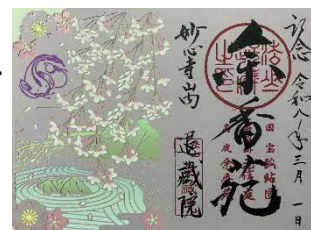 記念 令和八年三月一日
余香苑
妙心寺山内
退藏院